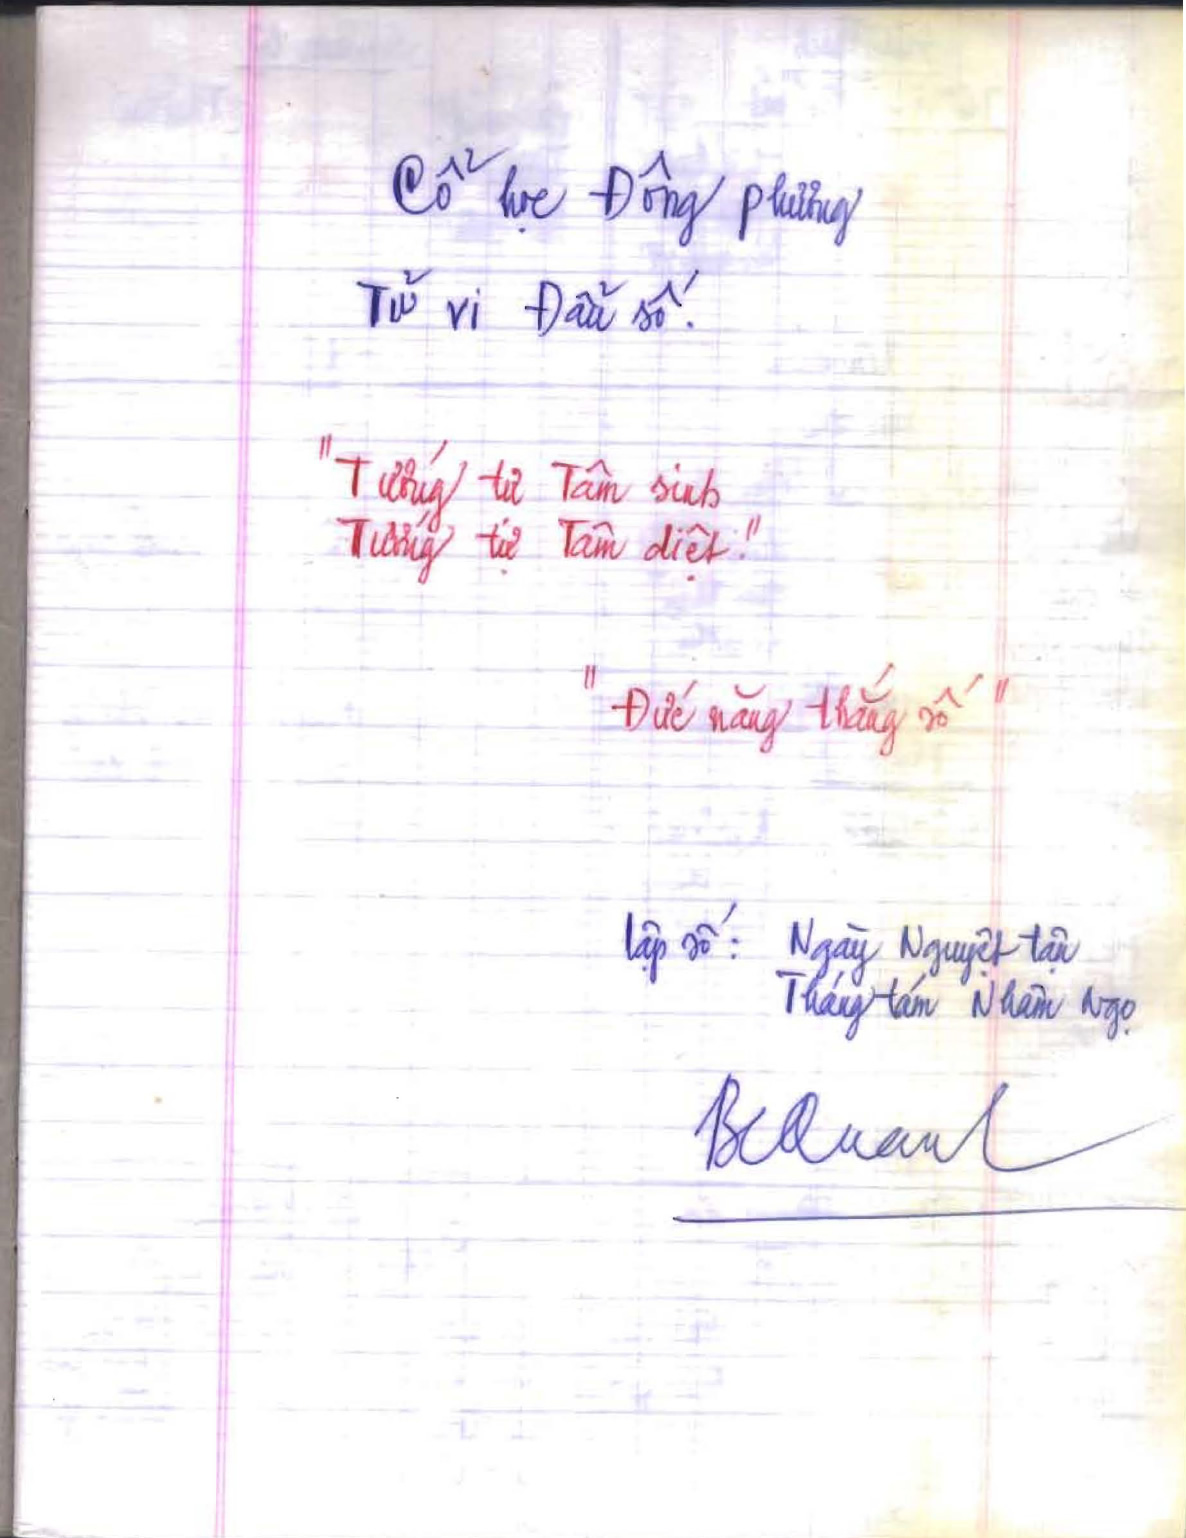 Cổ học Đông phương
Tử vi Đẩu số.
"Tướng tự Tâm sinh
Tướng tự Tâm diệt."
"Đức năng thắng số"
lập số: Ngày Nguyệt tận
Tháng tám Nhâm Ngọ